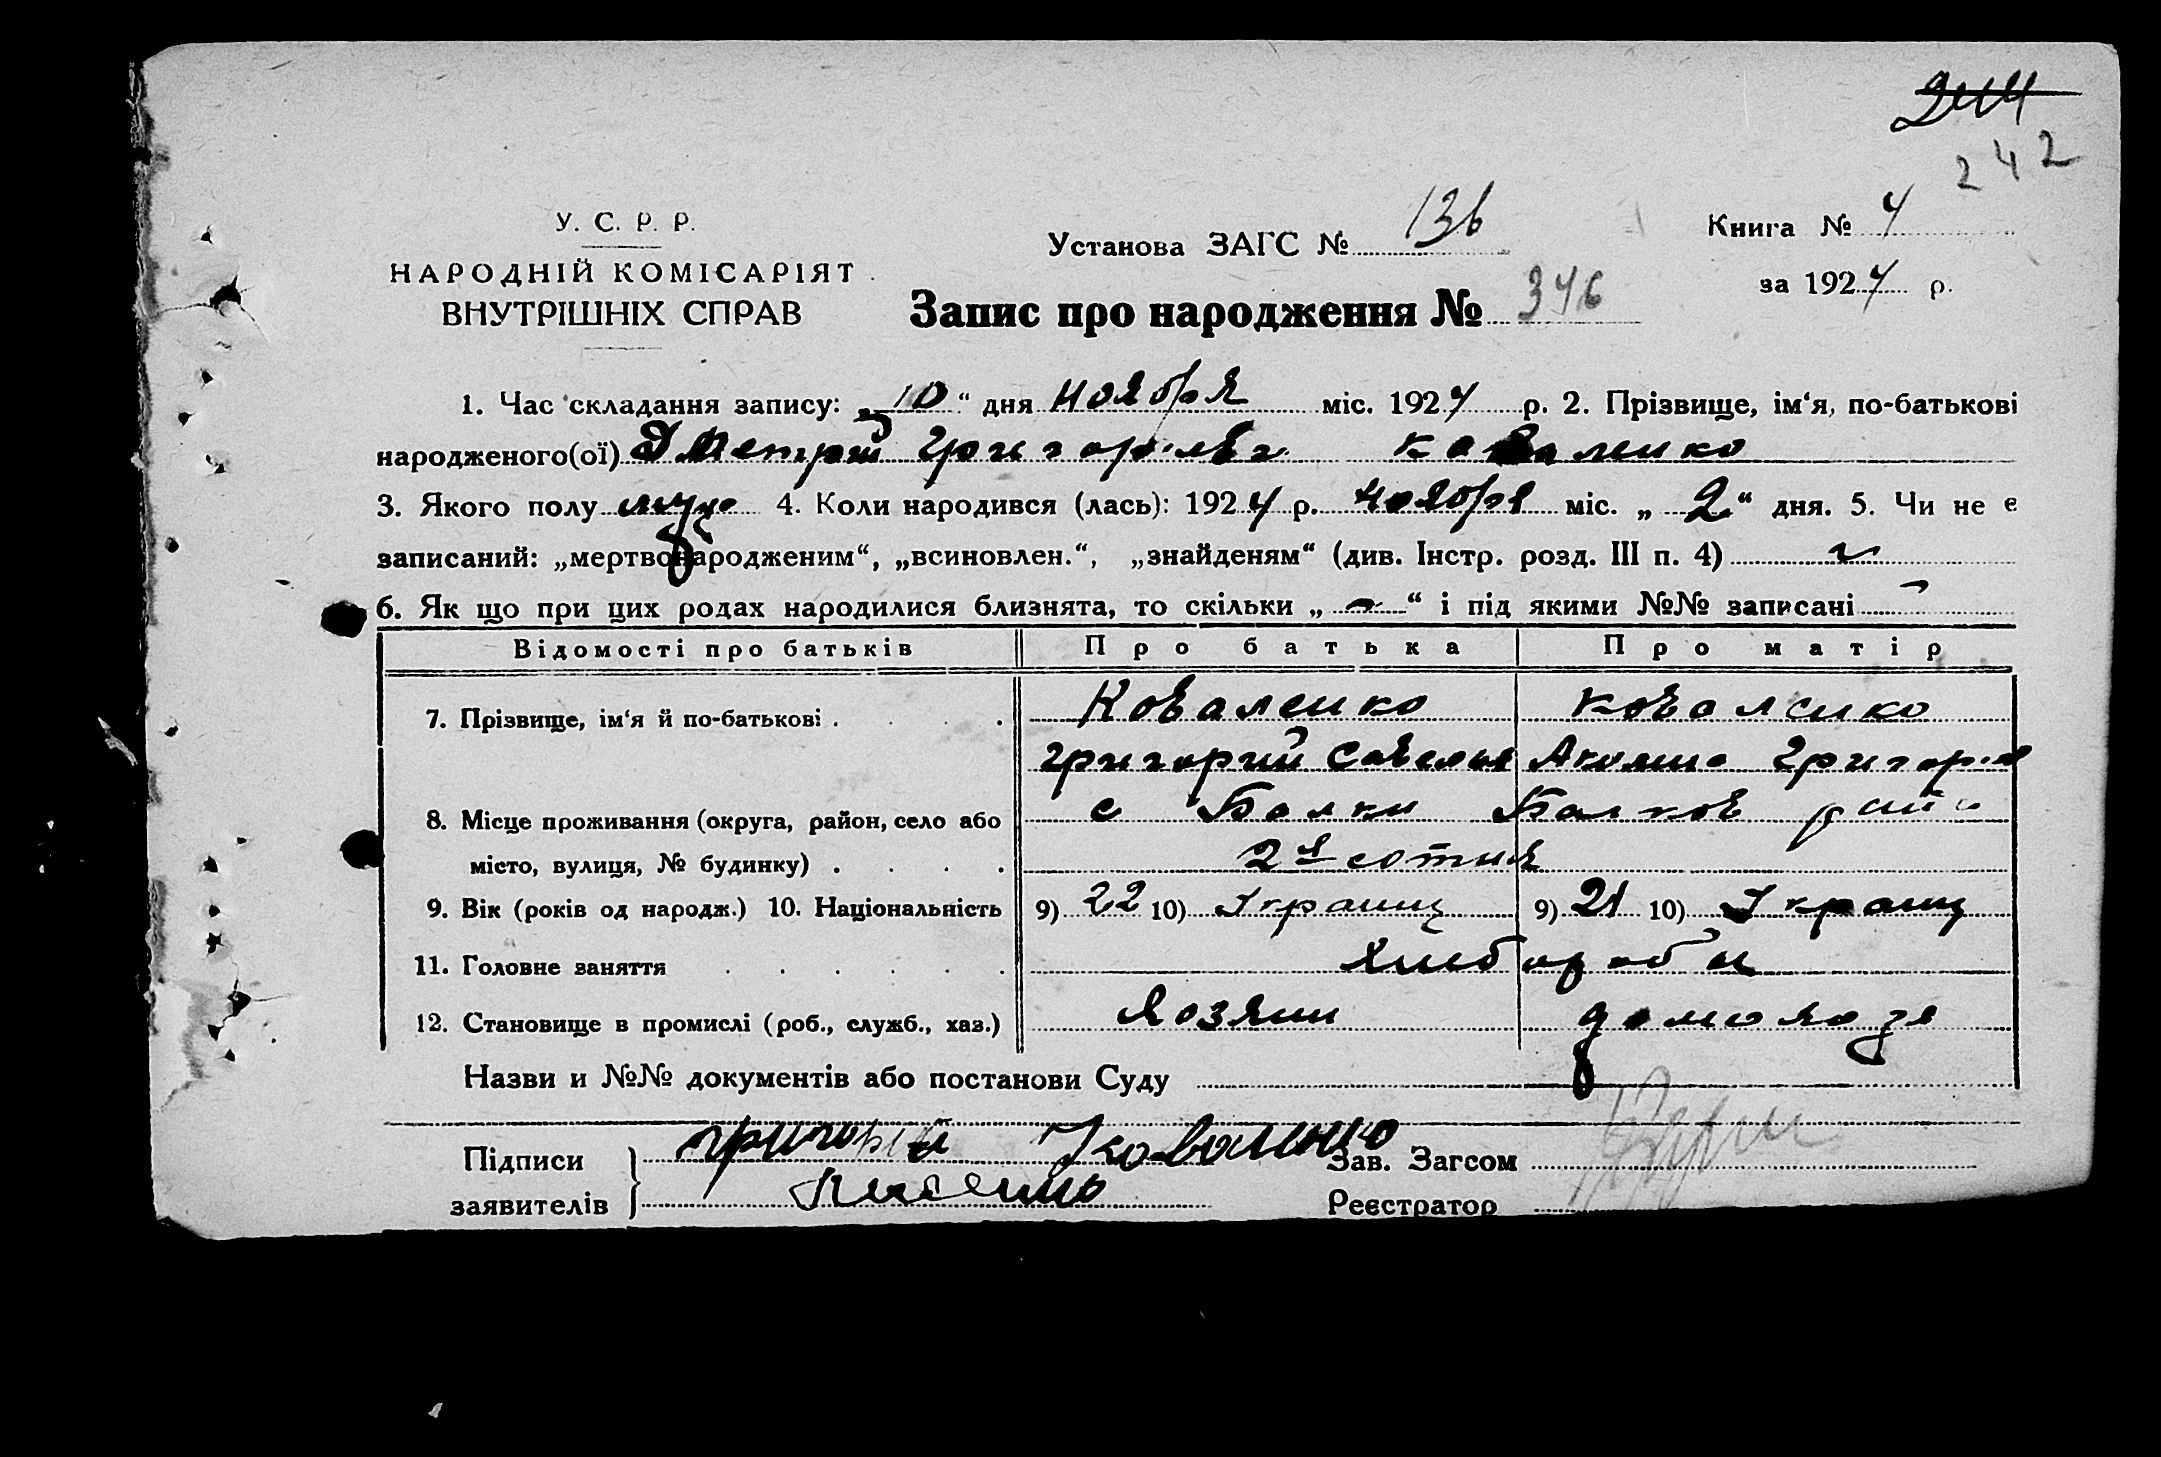 242
У. С. Р. Р.
НАРОДНІЙ КОМІСАРІЯТ
ВНУТРІШНІХ СПРАВ
Установа ЗАГС № 136
Книга № 4
за 1924 р.
Запис про народження № 346
1. Час складання запису: „10“ дня ноября міс. 1924 р. 2. Прізвище, ім‘я, по-батькові
народженого(ої) Дметрій Григорьев Коваленко
3. Якого полу муж 4. Коли народився (лась): 1924 р. ноября міс. „2“ дня. 5. Чи не є
записаний: „мертвонародженим“, „всиновлен.“, „знайденям“ (див. Інстр. розд. III п. 4)
6. Як що при цих родах народилися близнята, то скільки „ - “ і під якими №№ записані -
Відомості про батьків Про батька Про матір
7. Прізвище, ім‘я й по-батькові . . . . Коваленко Коваленко
Григорий Савелья Акулина Григор
8. Місце проживання (округа, район, село або с Балки Балков рай
місто, вулиця, № будинку) . . . . 2я сотня
9. Вік (років од народж.) 10. Національність 9) 22 10) Украинц 9) 21 10) Украинц
11. Головне заняття . . . . . . хлебороби
12. Становище в промислі (роб., служб., хаз.) хозяин домохозя
Назви и №№ документів або постанови Суду
Підписи Григорій Коваленко Зав. Загсом
заявителів Реєстратор